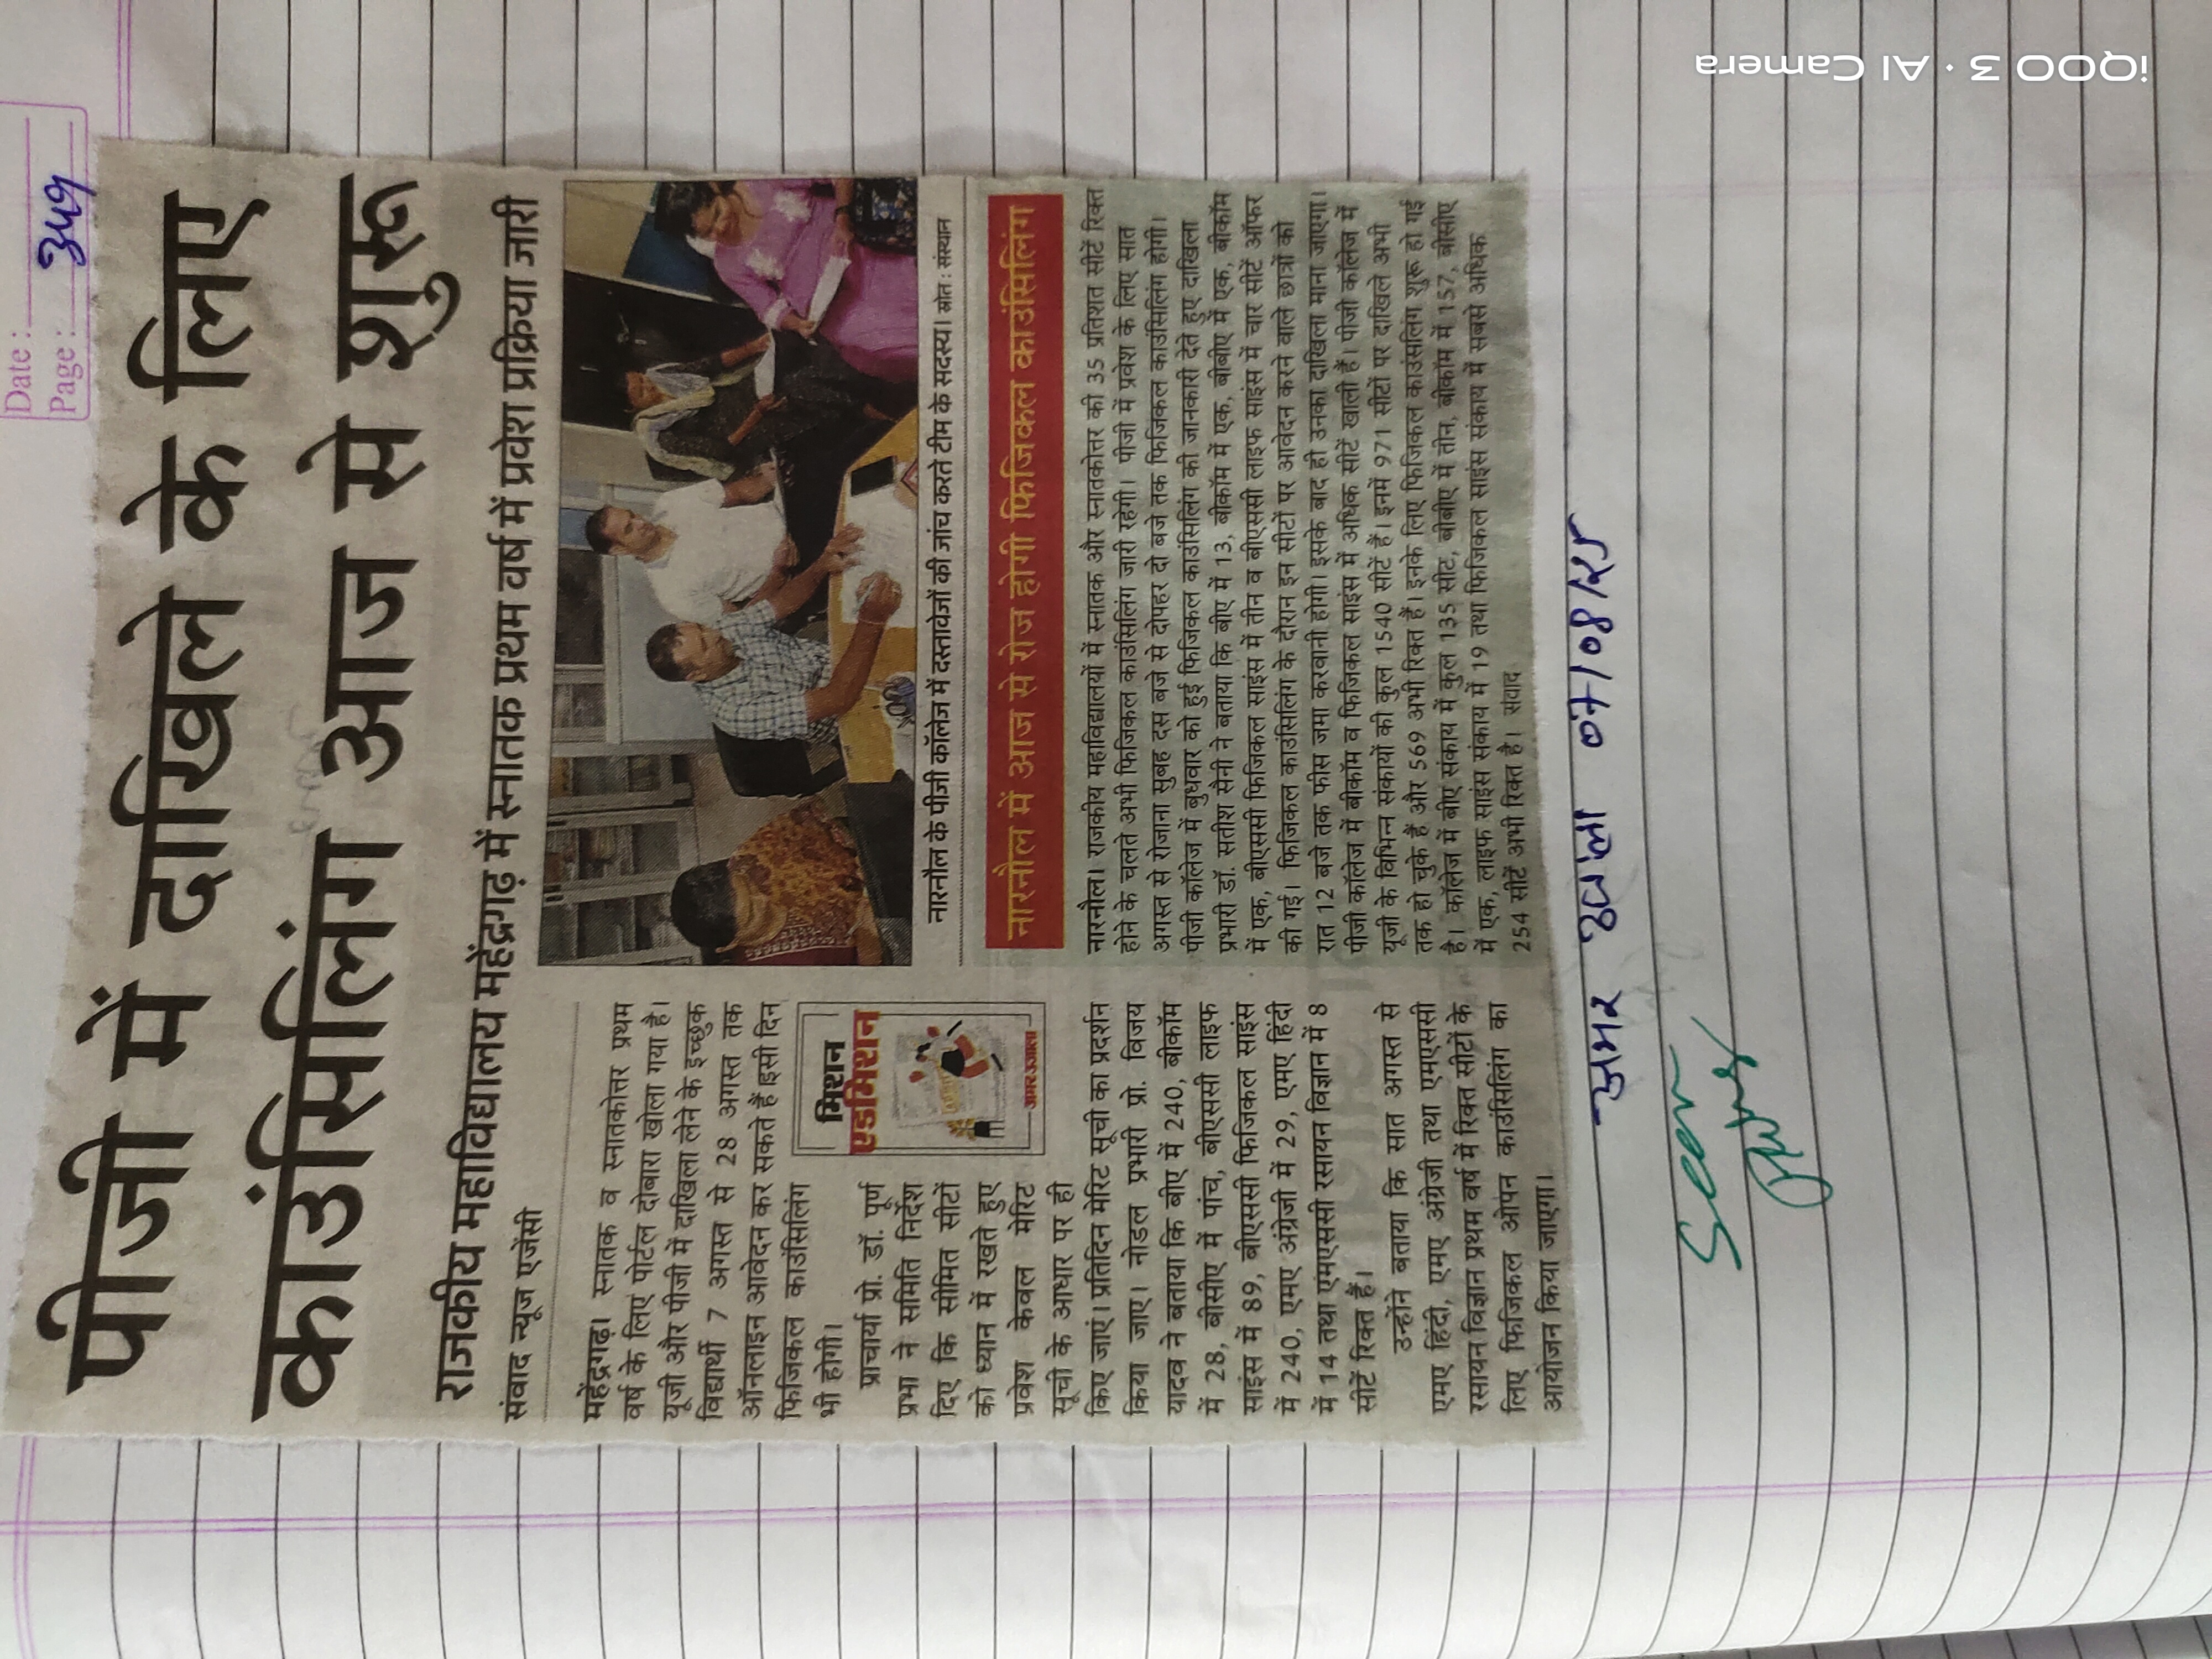 Date :
Page : 349
पीजी में दाखिले के लिए
काउंसिलिंग आज से शुरू
राजकीय महाविद्यालय महेंद्रगढ़ में स्नातक प्रथम वर्ष में प्रवेश प्रक्रिया जारी
संवाद न्यूज एजेंसी
महेंद्रगढ़। स्नातक व स्नातकोत्तर प्रथम
वर्ष के लिए पोर्टल दोबारा खोला गया है।
यूजी और पीजी में दाखिला लेने के इच्छुक
विद्यार्थी 7 अगस्त से 28 अगस्त तक
ऑनलाइन आवेदन कर सकते हैं। इसी दिन
फिजिकल काउंसिलिंग
भी होगी।
प्राचार्या प्रो. डॉ. पूर्ण
प्रभा ने समिति निर्देश
दिए कि सीमित सीटों
को ध्यान में रखते हुए
प्रवेश केवल मेरिट
सूची के आधार पर ही
किए जाएं। प्रतिदिन मेरिट सूची का प्रदर्शन
किया जाए। नोडल प्रभारी प्रो. विजय
यादव ने बताया कि बीए में 240, बीकॉम
में 28, बीसीए में पांच, बीएससी लाइफ
साइंस में 89, बीएससी फिजिकल साइंस
में 240, एमए अंग्रेजी में 29, एमए हिंदी
में 14 तथा एमएससी रसायन विज्ञान में 8
सीटें रिक्त हैं।
उन्होंने बताया कि सात अगस्त से
एमए हिंदी, एमए अंग्रेजी तथा एमएससी
रसायन विज्ञान प्रथम वर्ष में रिक्त सीटों के
लिए फिजिकल ओपन काउंसिलिंग का
आयोजन किया जाएगा।
मिशन
एडमिशन
अमर उजाला
नारनौल के पीजी कॉलेज में दस्तावेजों की जांच करते टीम के सदस्य। स्रोत : संस्थान
नारनौल में आज से रोज होगी फिजिकल काउंसिलिंग
नारनौल। राजकीय महाविद्यालयों में स्नातक और स्नातकोत्तर की 35 प्रतिशत सीटें रिक्त
होने के चलते अभी फिजिकल काउंसिलिंग जारी रहेगी। पीजी में प्रवेश के लिए सात
अगस्त से रोजाना सुबह दस बजे से दोपहर दो बजे तक फिजिकल काउंसिलिंग होगी।
पीजी कॉलेज में बुधवार को हुई फिजिकल काउंसिलिंग की जानकारी देते हुए दाखिला
प्रभारी डॉ. सतीश सैनी ने बताया कि बीए में 13, बीकॉम में एक, बीबीए में एक, बीकॉम
में एक, बीएससी फिजिकल साइंस में तीन व बीएससी लाइफ साइंस में चार सीटें ऑफर
की गई। फिजिकल काउंसिलिंग के दौरान इन सीटों पर आवेदन करने वाले छात्रों को
रात 12 बजे तक फीस जमा करवानी होगी। इसके बाद ही उनका दाखिला माना जाएगा।
पीजी कॉलेज में बीकॉम व फिजिकल साइंस में अधिक सीटें खाली हैं। पीजी कॉलेज में
यूजी के विभिन्न संकायों की कुल 1540 सीटें हैं। इनमें 971 सीटों पर दाखिले अभी
तक हो चुके हैं और 569 अभी रिक्त हैं। इनके लिए फिजिकल काउंसलिंग शुरू हो गई
है। कॉलेज में बीए संकाय में कुल 135 सीट, बीबीए में तीन, बीकॉम में 157, बीसीए
में एक, लाइफ साइंस संकाय में 19 तथा फिजिकल साइंस संकाय में सबसे अधिक
254 सीटें अभी रिक्त है। संवाद
अमर उजाला 07/08/25
Seen
iQOO 3 · AI Camera